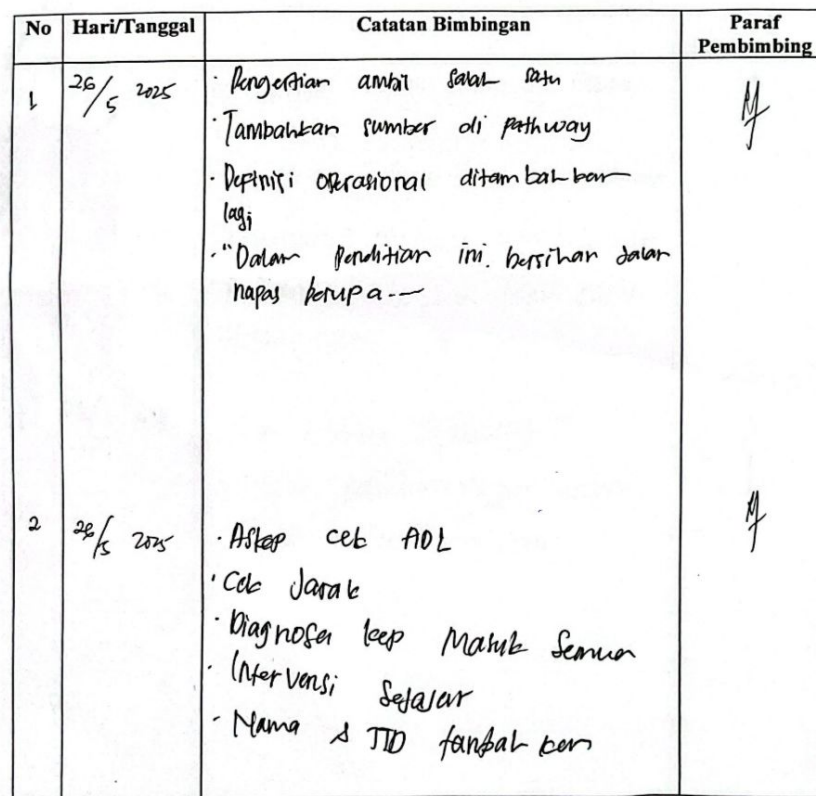 No Hari/Tanggal Catatan Bimbingan Paraf Pembimbing
1 26/5 2025 · Pengertian ambil salah satu
· Tambahkan sumber di pathway
· Definisi operasional ditambahkan
lagi
· "Dalam penelitian ini bersihan jalan
napas berupa ---
2 28/5 2025 · Askep cek ADL
· Cek Jarak
· Diagnosa kep Masuk Semua
· Intervensi Sejajar
· Nama & TTD tambahkan